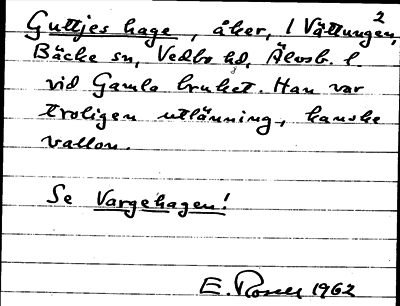 2
Guttjes hage, åker, 1 Vättungen,
Bäcke sn, Vedbo hd, Älvsb. l.
vid Gamla bruket. Han var
troligen utlänning, kanske
vallon.
Se Vargehagen!
E. Rosell 1962